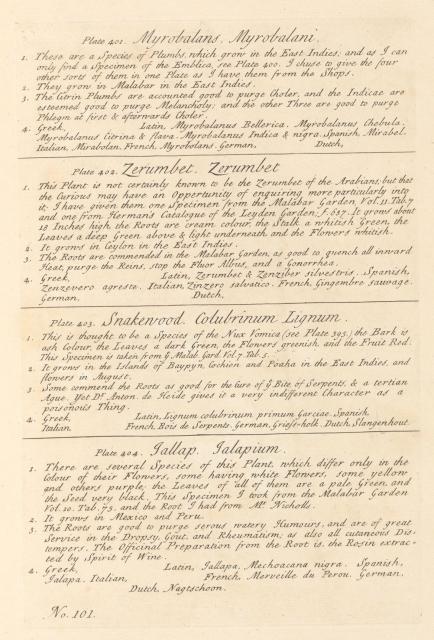 Plate 401. Myrobalans. Myrobalani.
1. These are a Species of Plumbs, which grow in the East Indies; and as I can
only find a Specimen of the Emblica, see Plate 400. I chuse to give the four
other sorts of them in one Plate as I have them from the Shops.
2. They grow in Malabar in the East Indies.
3. The Citrin Plumbs are accounted good to purge Choler, and the Indicae are
esteemed good to purge Melancholy; and the other Three are good to purge
Phlegm at first & afterwards Choler.
4. Greek, Latin, Myrobalanus Bellerica. Myrobalanus Chebula.
Myrobalanus Citrina & flava. Myrobalanus Indica & nigra. Spanish, Mirabel.
Italian, Mirabolan. French, Myrobolans. German, Dutch,
Plate 404. Zerumbet. Zerumbet
1. This Plant is not certainly known to be the Zerumbet of the Arabians; but that
the Curious may have an Opportunity of enquiring more particularly into
it; I have given them one Specimen from the Malabar Garden Vol. 11. Tab. 7
and one from Herman's Catalogue of the Leyden Garden; f. 637. It grows about
18 Inches high, the Roots are cream colour, the Stalk a whitish Green, the
Leaves a deep Green above & light underneath and the Flowers whitish.
2. It grows in Ceylon in the East Indies.
3. The Roots are commended in the Malabar Garden, as good to quench all inward
Heat, purge the Reins, stop the Fluor Albus, and a Gonorrhea.
4. Greek, Latin, Zerumbet & Zenziber silvestris. Spanish,
Zenzevero agreste. Italian, Zinzero salvatico. French, Gingembre sauvage.
German, Dutch,
Plate 403. Snakewood. Colubrinum Lignum.
1. This is thought to be a Species of the Nux Vomica (see Plate 395.) the Bark is
ash Colour, the Leaves a dark Green, the Flowers greenish, and the Fruit Red.
This Specimen is taken from ye Malab. Gard. Vol. 7. Tab. 5.
2. It grows in the Islands of Baypyn, Cochien and Poaha in the East Indies, and
flowers in August.
3. Some commend the Roots as good for the Cure of ye Bite of Serpents, & a tertian
Ague. Yet Dr. Anton. de Heide gives it a very indifferent Character as a
poisonous Thing.
4. Greek, Latin, Lignum colubrinum primum Garciae. Spanish,
Italian, French, Bois de Serpents. German, Griess-holk. Dutch, Slangenhout.
Plate 404. Jallap. Jalapium.
1. There are several Species of this Plant, which differ only in the
Colour of their Flowers, some having white Flowers, some yellow
and others purple; the Leaves of all of them are a pale Green, and
the Seed very black. This Specimen I took from the Malabar Garden
Vol. 10. Tab. 73. and the Root I had from Mr. Nicholls.
2. It grows in Mexico and Peru.
3. The Roots are good to purge serous watery Humours, and are of great
Service in the Dropsy, Gout, and Rheumatism; as also all cutaneous Dis-
tempers. The Officinal Preparation from the Root is, the Rosin extrac-
ted by Spirit of Wine.
4. Greek, Latin, Jallapa, Mechoacana nigra. Spanish,
Jalapa. Italian, French, Merveille du Perou. German,
Dutch, Nagtschoon.
No. 101.